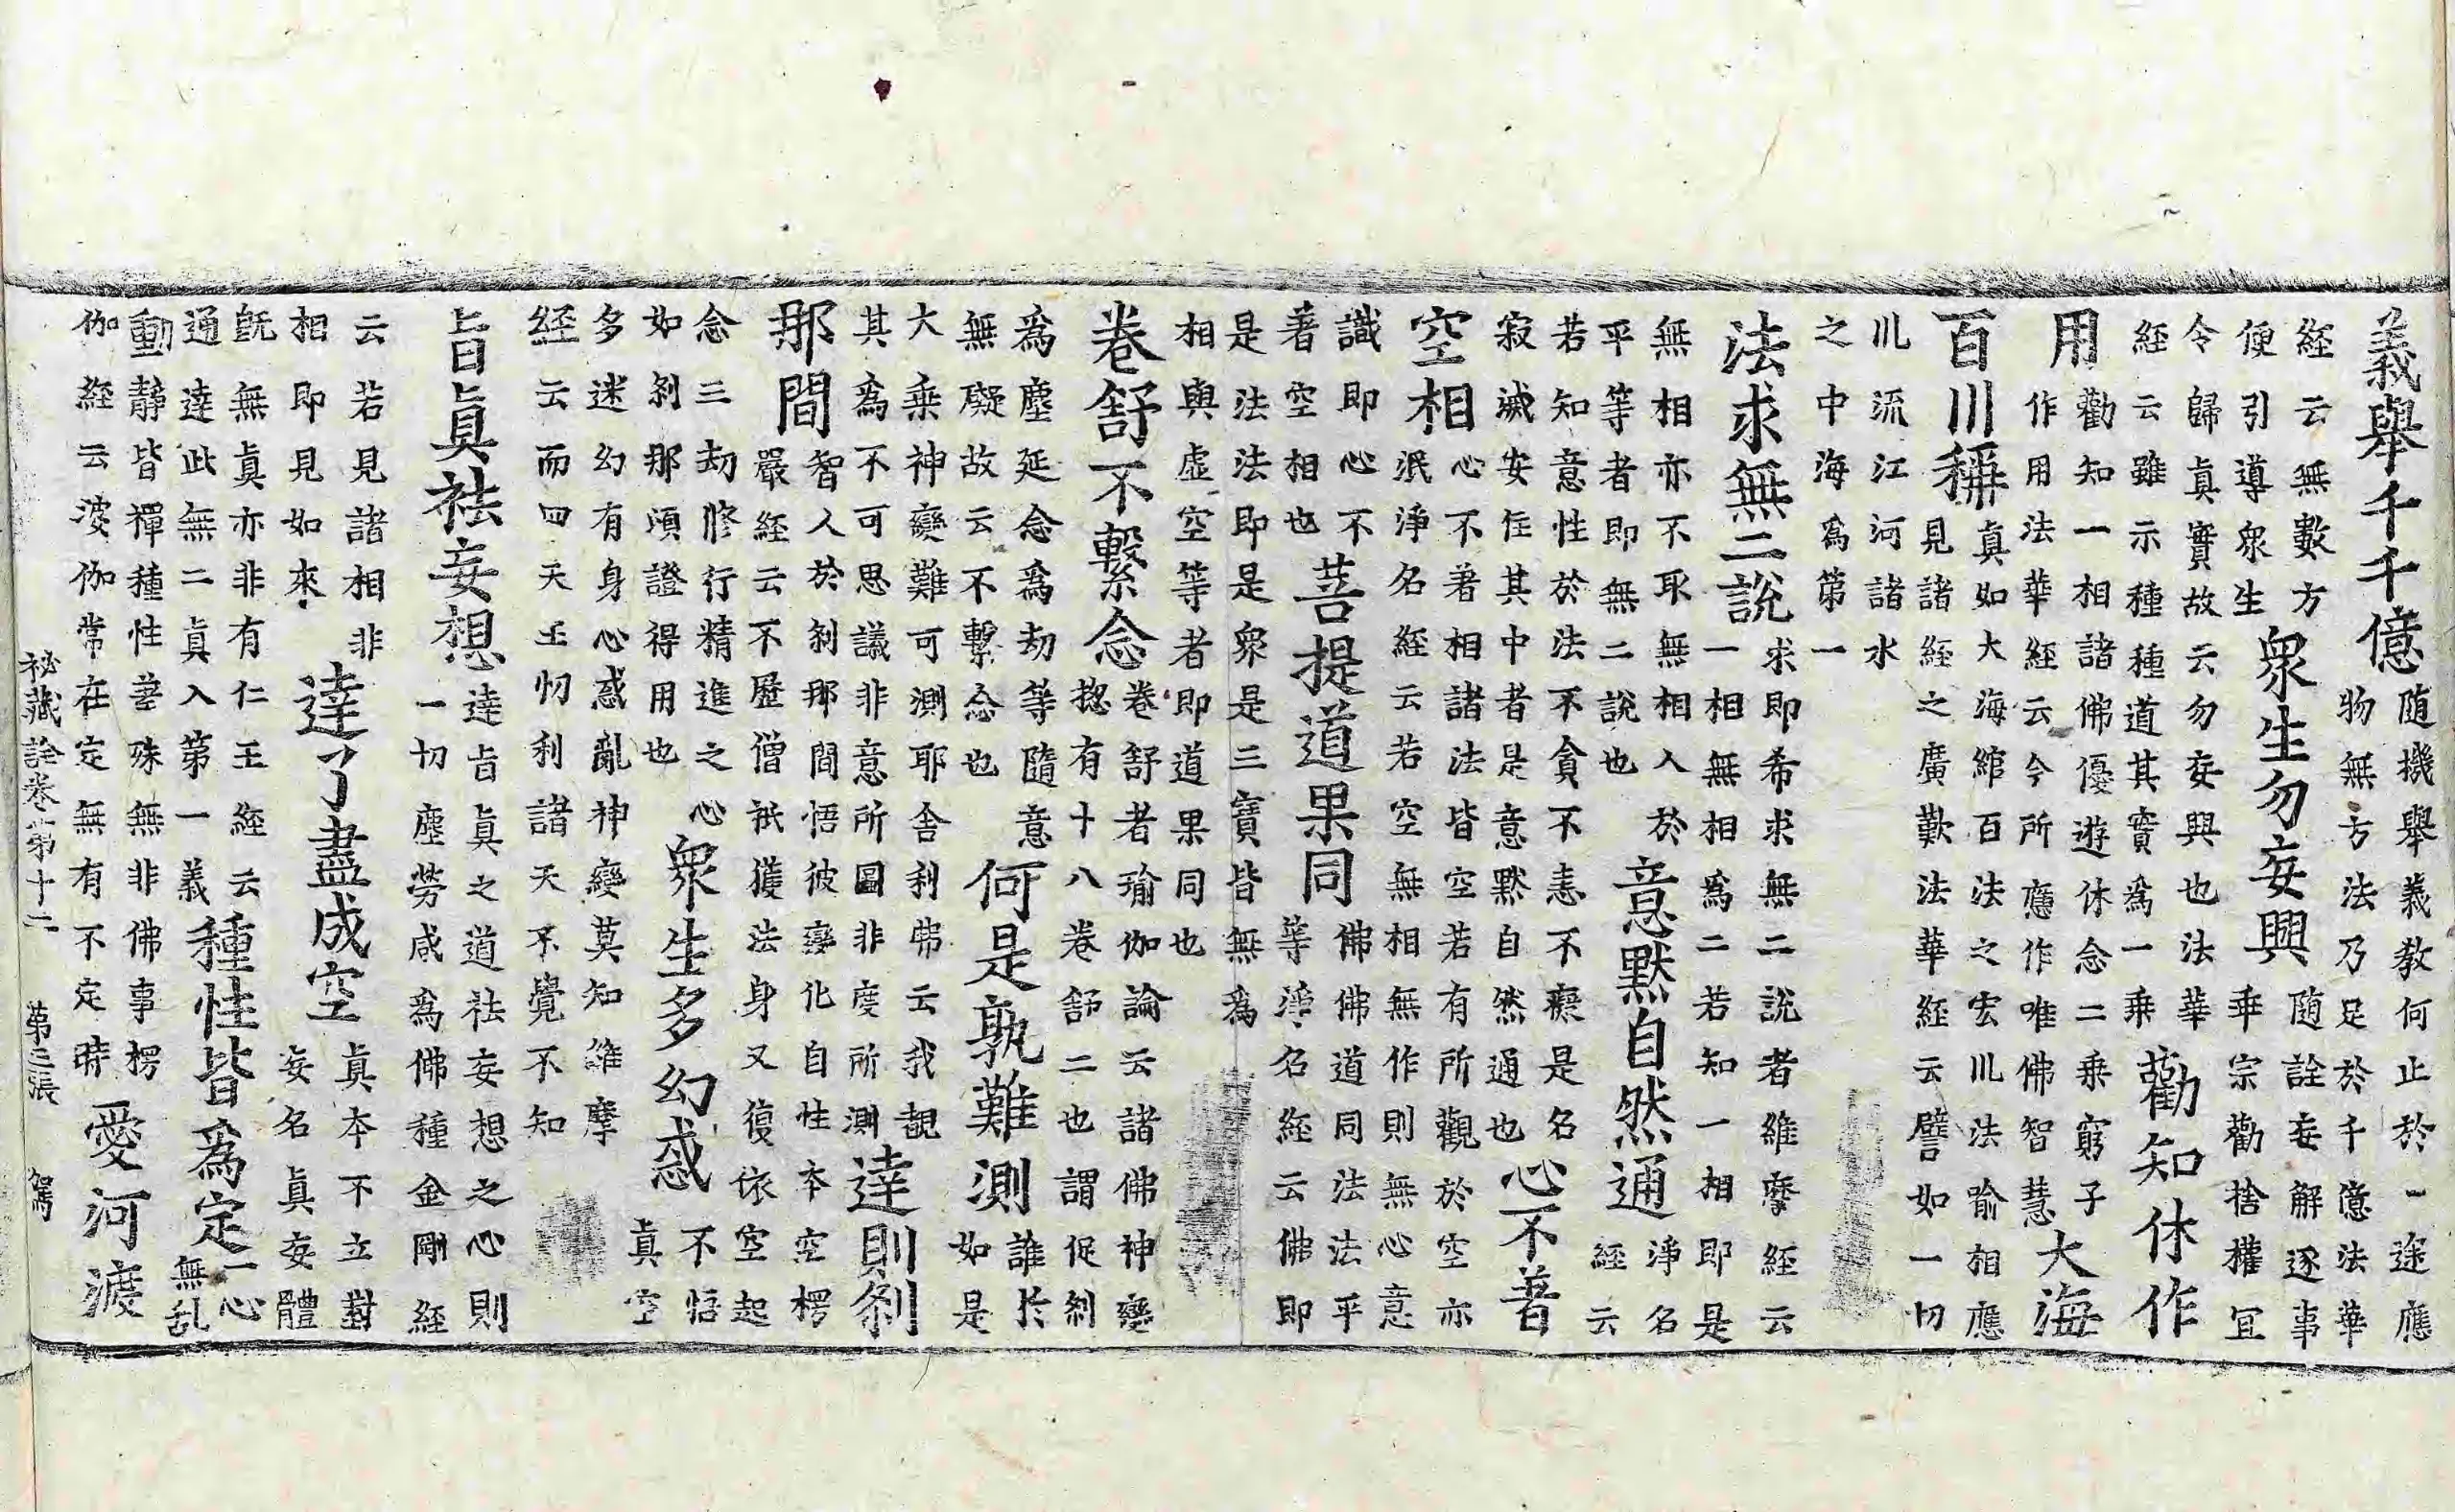 義舉千千億
随機舉義教何止於一途應
物無方法乃足於千億法華
經云無數方
便引導衆生
衆生勿妄興
随詮妄解逐事
乖宗勸捨權冝
令歸真實故云勿妄興也法華
經云雖示種種道其實爲一乗
勸知休作
用
勸知一相諸佛優遊休念二乗窮子
作用法華經云今所應作唯佛智慧
大海
百川稱
真如大海綰百法之宏川法喻相應
見諸經之廣歎法華經云譬如一切
川流江河諸水
之中海爲第一
法求無二說
求即希求無二說者維摩經云
一相無相爲二若知一相即是
無相亦不取無相入於
平等者即無二說也
意默自然通
淨名
經云
若知意性於法不貪不恚不癡是名
寂滅安住其中者是意默自然通也
心不著
空相
心不著相諸法皆空若有所觀於空亦
泯淨名經云若空無相無作則無心意
識即心不
著空相也
菩提道果同
佛佛道同法法平
等淨名經云佛即
是法法即是衆是三寶皆無爲
相與虛空等者即道果同也
卷舒不繫念
卷舒者瑜伽論云諸佛神變
惣有十八卷舒二也謂促刹
爲塵延念爲劫等隨意
無礙故云不繫念也
何是孰難測
誰於
如是
大乗神變難可測耶舍利弗云我覩
其爲不可思議非意所圖非度所測
達則刹
那間
智人於刹那間悟彼變化自性本空楞
嚴經云不歷僧祇獲法身又復依空起
念三劫修行精進之心
如刹那頃證得用也
衆生多幻惑
不悟
真空
多迷幻有身心惑亂神變莫知維摩
經云而四天王忉利諸天不覺不知
旨真袪妄想
達旨真之道袪妄想之心則
一切塵勞咸爲佛種金剛經
云若見諸相非
相即見如來
達了盡成空
真本不立對
妄名真妄體
旣無真亦非有仁王經云
通達此無二真入第一義
種性皆爲定
一心
無乱
動靜皆禪種性善殊無非佛事楞
伽經云淩伽常在定無有不定時
愛河渡
祕藏詮卷第十二 第三張 駕